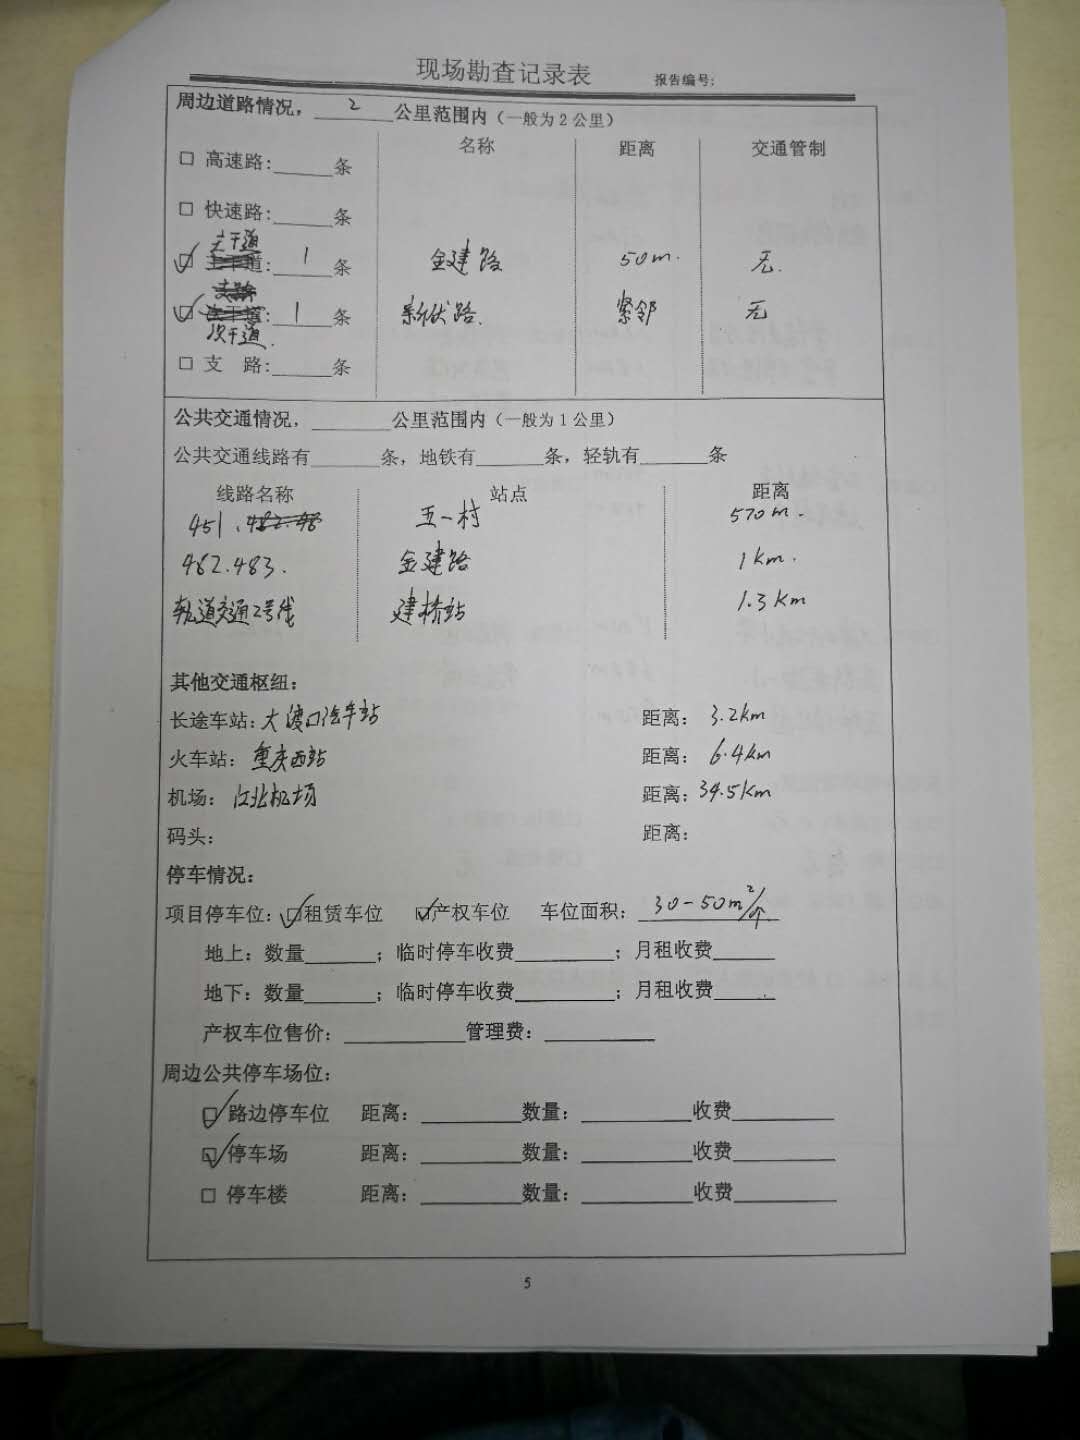 现场勘查记录表 报告编号:
周边道路情况，2公里范围内（一般为2公里）
名称 距离 交通管制
□ 高速路:______条
□ 快速路:______条
主干道
☑ 主干道: 1 条 金建路 50m. 无.
支路
☑ 次干道: 1 条 新伏路. 紧邻 无
次干道.
□ 支 路:______条
公共交通情况，________公里范围内（一般为1公里）
公共交通线路有_______条，地铁有_______条，轻轨有_______条
线路名称 站点 距离
451、482.48 五一村 570m.
462.483. 金建路 1km.
轨道交通2号线 建桥站 1.3Km
其他交通枢纽：
长途车站：大渡口汽车站 距离： 3.2km
火车站：重庆西站 距离： 6.4km
机场：江北机场 距离：34.5km
码头： 距离：
停车情况：
项目停车位：☑租赁车位 ☑产权车位 车位面积：30-50m²/个
地上：数量_______；临时停车收费__________；月租收费______
地下：数量_______；临时停车收费__________；月租收费______
产权车位售价：____________管理费：___________
周边公共停车场位：
☑ 路边停车位 距离：__________数量：___________收费__________
☑ 停车场 距离：__________数量：___________收费__________
□ 停车楼 距离：__________数量：___________收费__________
5